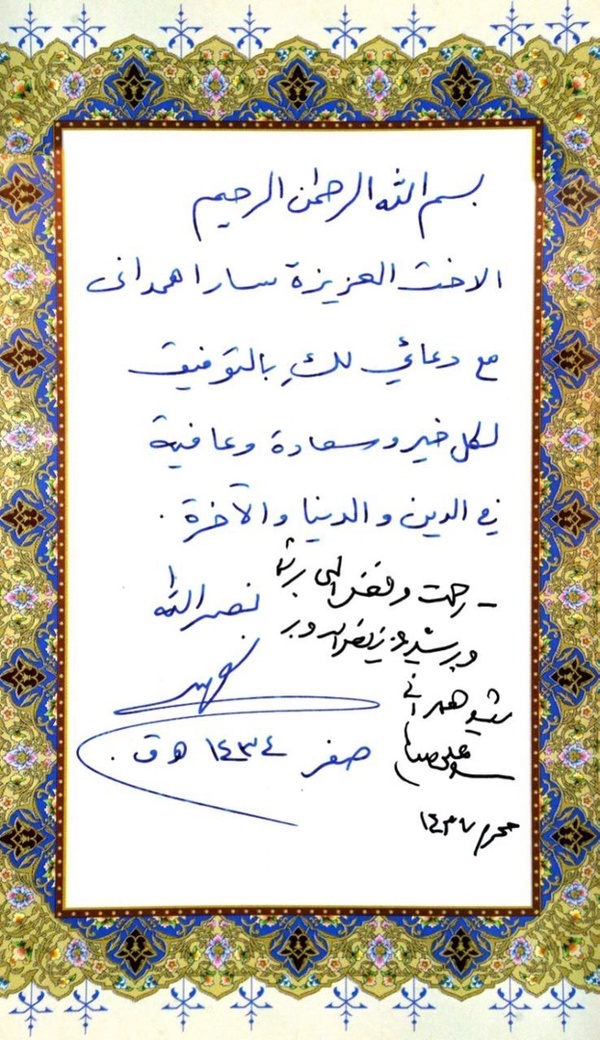 بسم الله الرحمٰن الرحيم
الاخت العزيزة سارا همدانی
مع دعائي لكِ بالتوفيق
لكل خير وسعادة وعافية
في الدين والدنيا والآخرة .
نصر الله
صفر ١٤٣٤ ه ق .
ـ رحمت و فضل الهی بر شما
و بر شهید عزیز نصرالله و بر
شهید همدانی
محرم ١٤٣٧